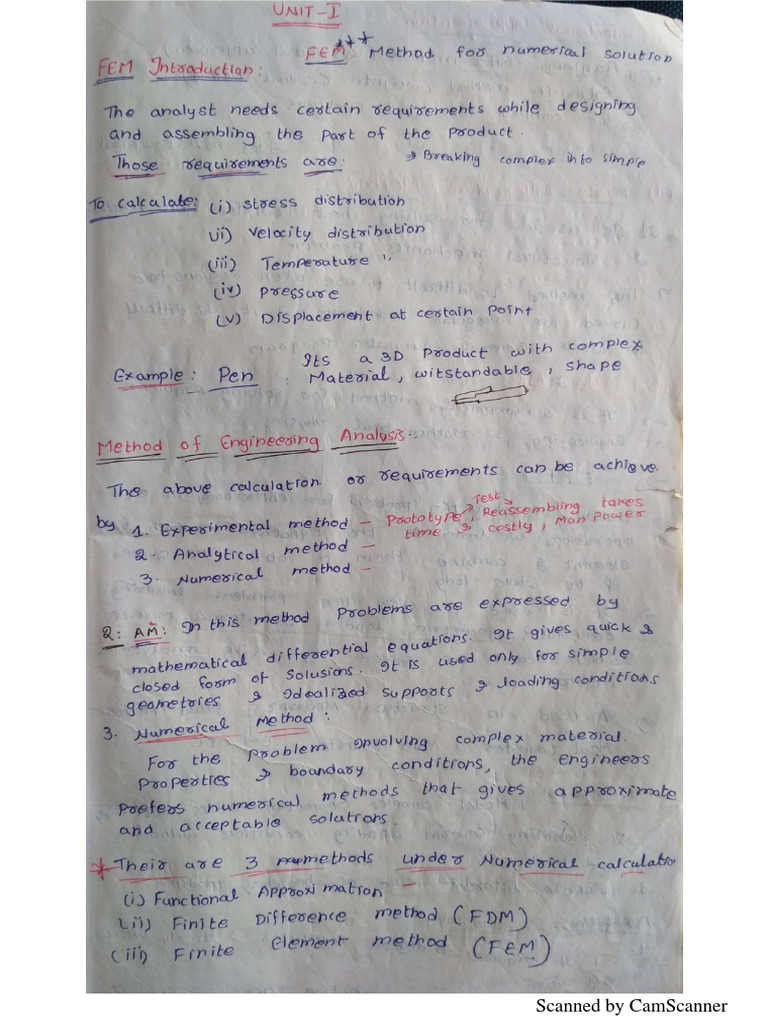 UNIT-I
FEM*** Method for numerical solution
FEM Introduction:
The analyst needs certain requirements while designing
and assembling the part of the product.
Those requirements are: → Breaking complex into simple
To calculate: (i) stress distribution
(ii) velocity distribution
(iii) Temperature "
(iv) pressure
(v) Displacement at certain point
Its a 3D product with complex
Example: Pen : Material, witstandable, shape
Method of Engineering Analysis.
The above calculation or requirements can be achieve
Test
by 1. Experimental method - Prototype, Reassembling takes
time & costly, Man Power
2. Analytical method -
3. Numerical method -
2: AM: In this method problems are expressed by
mathematical differential equations. It gives quick &
closed form of solusions. It is used only for simple
geometries & Idealized supports & loading conditions
3. Numerical Method:
For the problem involving complex material.
Properties & boundary conditions, the engineers
Prefers numerical methods that gives approximate
and acceptable solutions.
* Their are 3 methods under Numerical calculatio
(i) Functional Approximation -
(ii) Finite Difference method (FDM)
(iii) Finite Element method (FEM)
Scanned by CamScanner